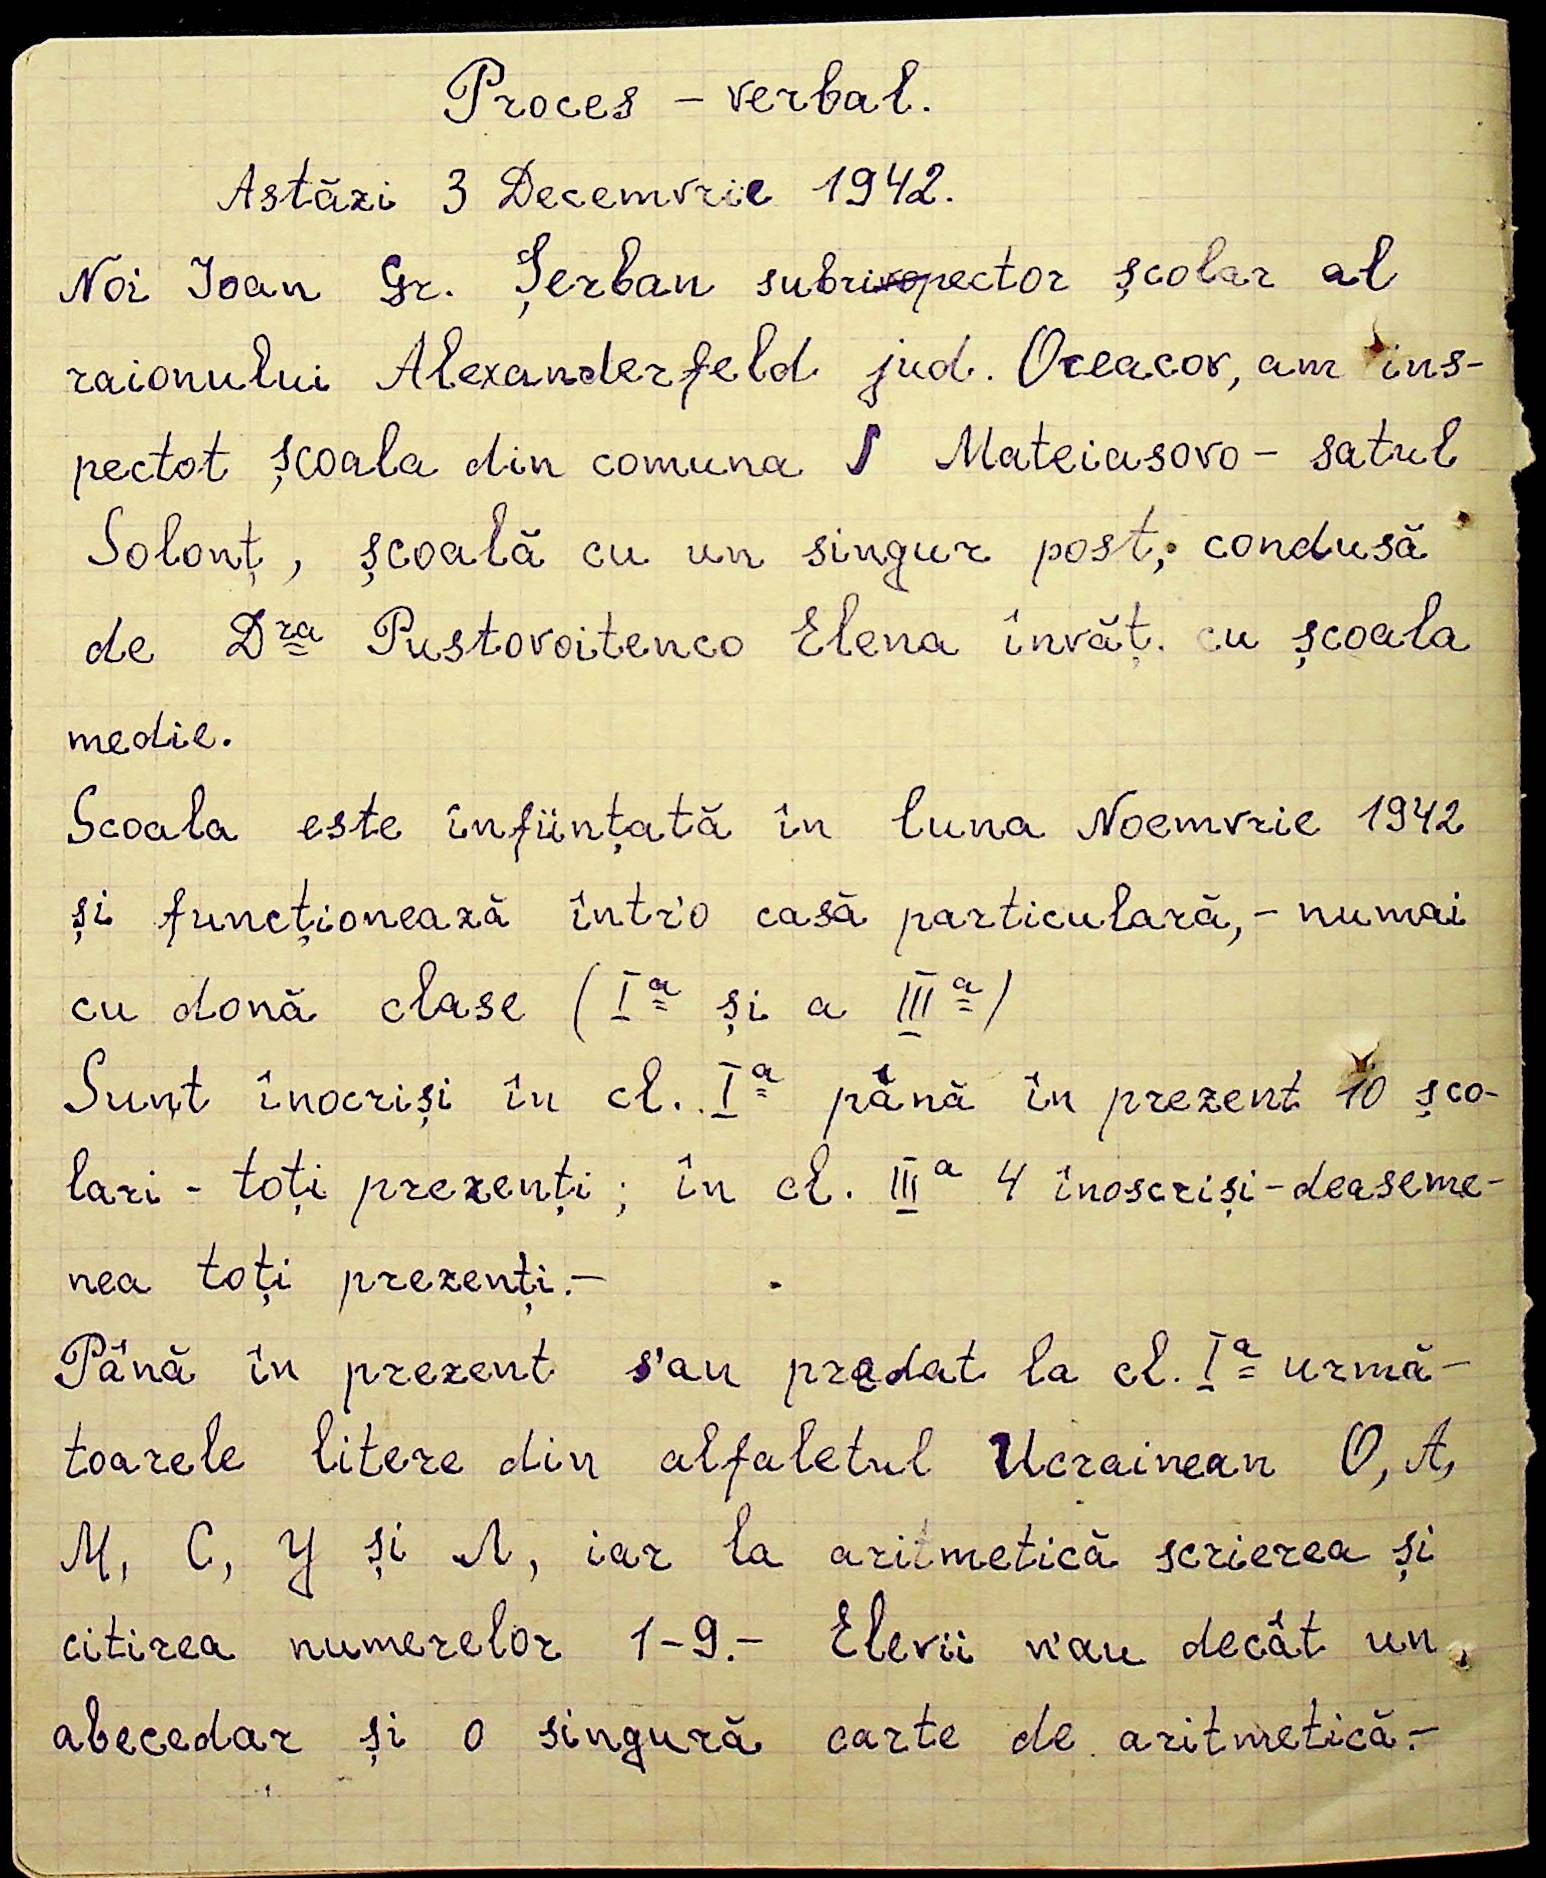 Proces – verbal.
Astăzi 3 Decemvrie 1942.
Noi Ioan Gr. Șerban subrivopector școlar al
raionului Alexanderfeld jud. Oceacov, am ins-
pectot școala din comuna S Mateiasovo – satul
Solonț, școală cu un singur post, condusă
de Dra Pustovoitenco Elena învăț. cu școala
medie.
Scoala este înființată în luna Noemvrie 1942
și funcționează într'o casă particulară, – numai
cu donă clase (Ia și a IIIa)
Sunt înocriși în cl. Ia până în prezent 10 șco-
lari – toți prezenți; în cl. IIIa 4 înoscriși – deaseme-
nea toți prezenți. –
Până în prezent s'au predat la cl. Ia urmă-
toarele litere din alfaletul Ucrainean O, A,
M, C, У și Л, iar la aritmetică scrierea și
citirea numerelor 1–9. – Elevii n'au decât un
abecedar și o singură carte de aritmetică. –